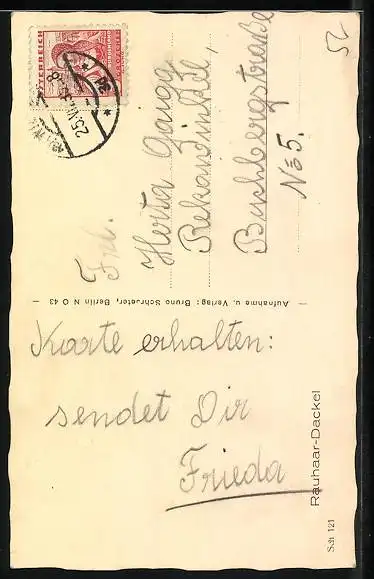 ÖSTERREICH
GROSCHEN
25.VII.34-8
Frl.
Herta Gangg
Rekawinkel,
Buchbergstraße
No 5.
52
Aufnahme u. Verlag: Bruno Schroeter, Berlin N O 43
Karte erhalten:
sendet Dir
Frieda
Rauhaar-Dackel
S.n 121